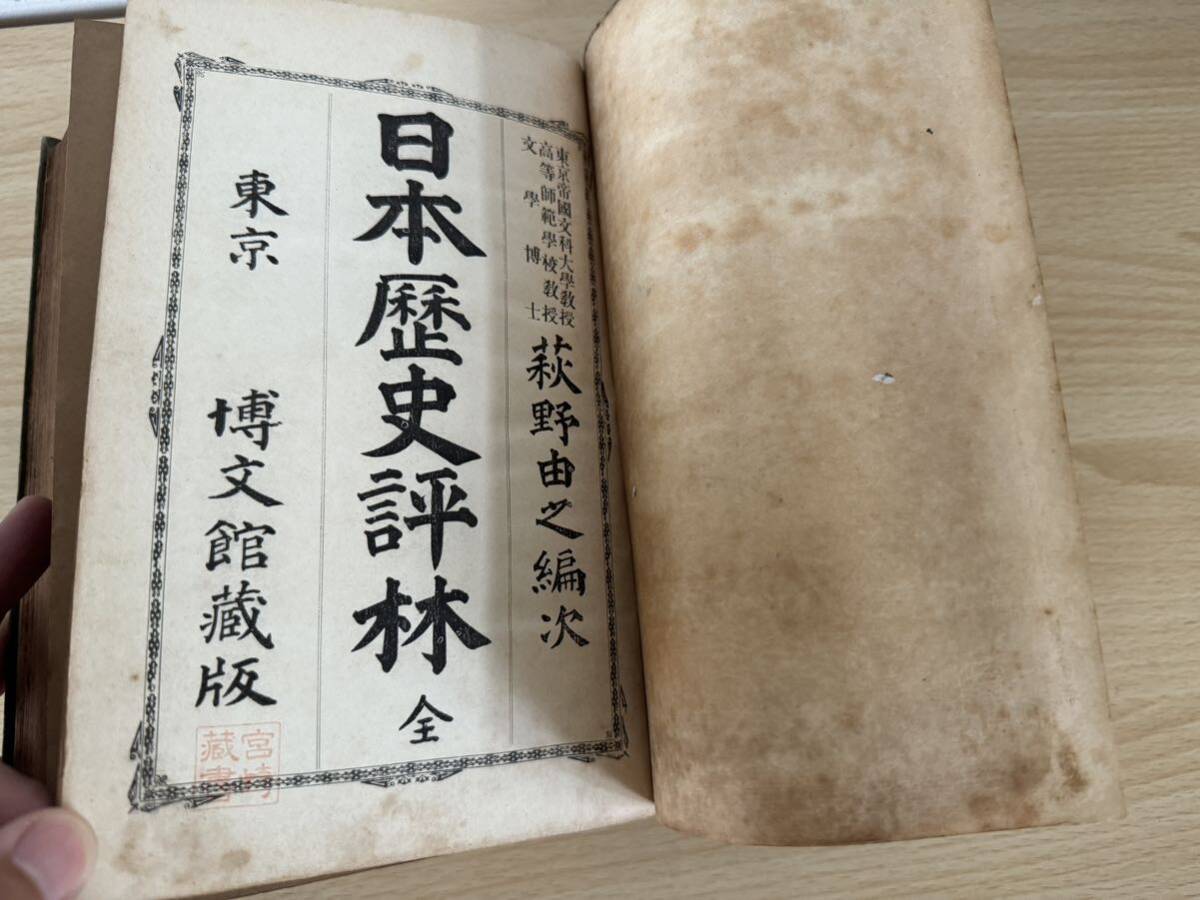 東京帝國文科大學教授
高等師範學校教授
文學博士
萩野由之編次
日本歷史評林 全
東京 博文館藏版
宮崎
藏書